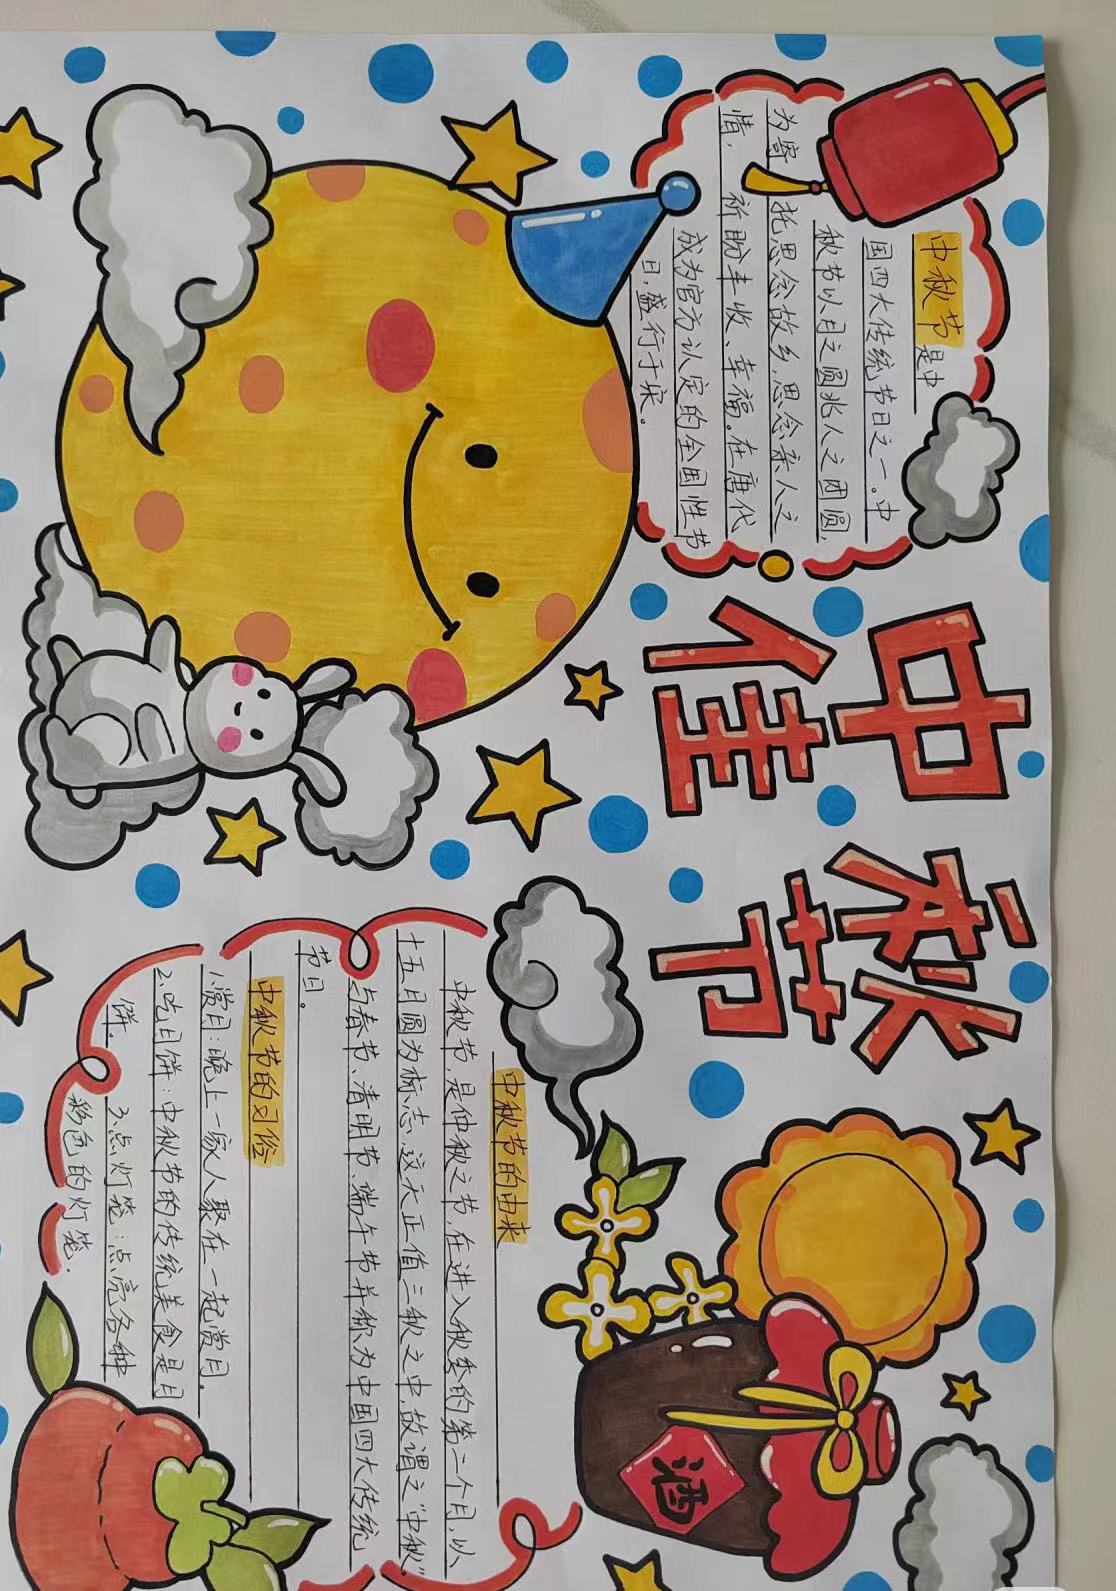 中秋
佳节
中秋节是中
国四大传统节日之一。中
秋节以月之圆兆人之团圆,
为寄托思念故乡,思念亲人之
情,祈盼丰收、幸福。在唐代
成为官方认定的全国性节
日,盛行于宋。
中秋节的由来
中秋节,是仲秋之节,在进入秋季的第二个月,以
十五月圆为标志,这天正值三秋之中,故谓之“中秋”。
与春节、清明节、端午节并称为中国四大传统
节日。
中秋节的习俗
1.赏月:晚上一家人聚在一起赏月。
2.吃月饼:中秋节的传统美食是月
饼。
3.点灯笼:点亮各种
彩色的灯笼
酒